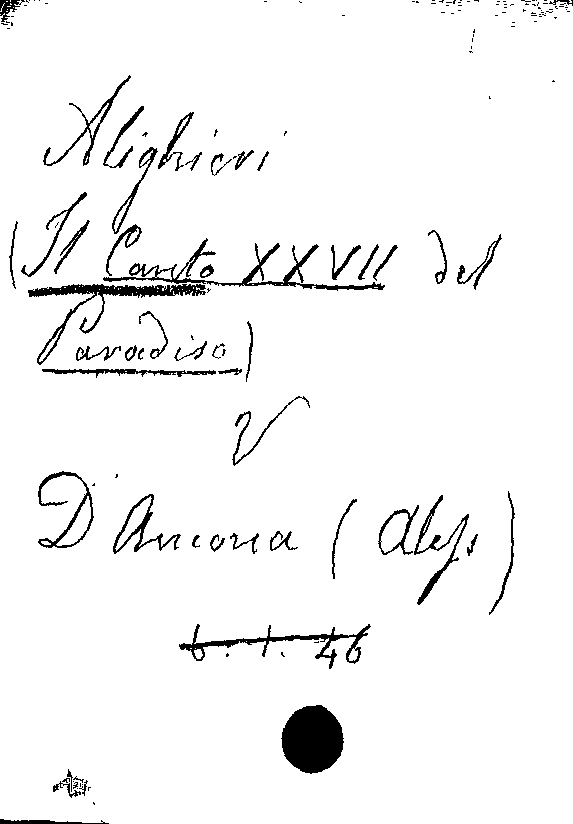 Alighieri
(Il Canto XXVII del
Paradiso)
V
D'Ancona (Aless)
6.1.46